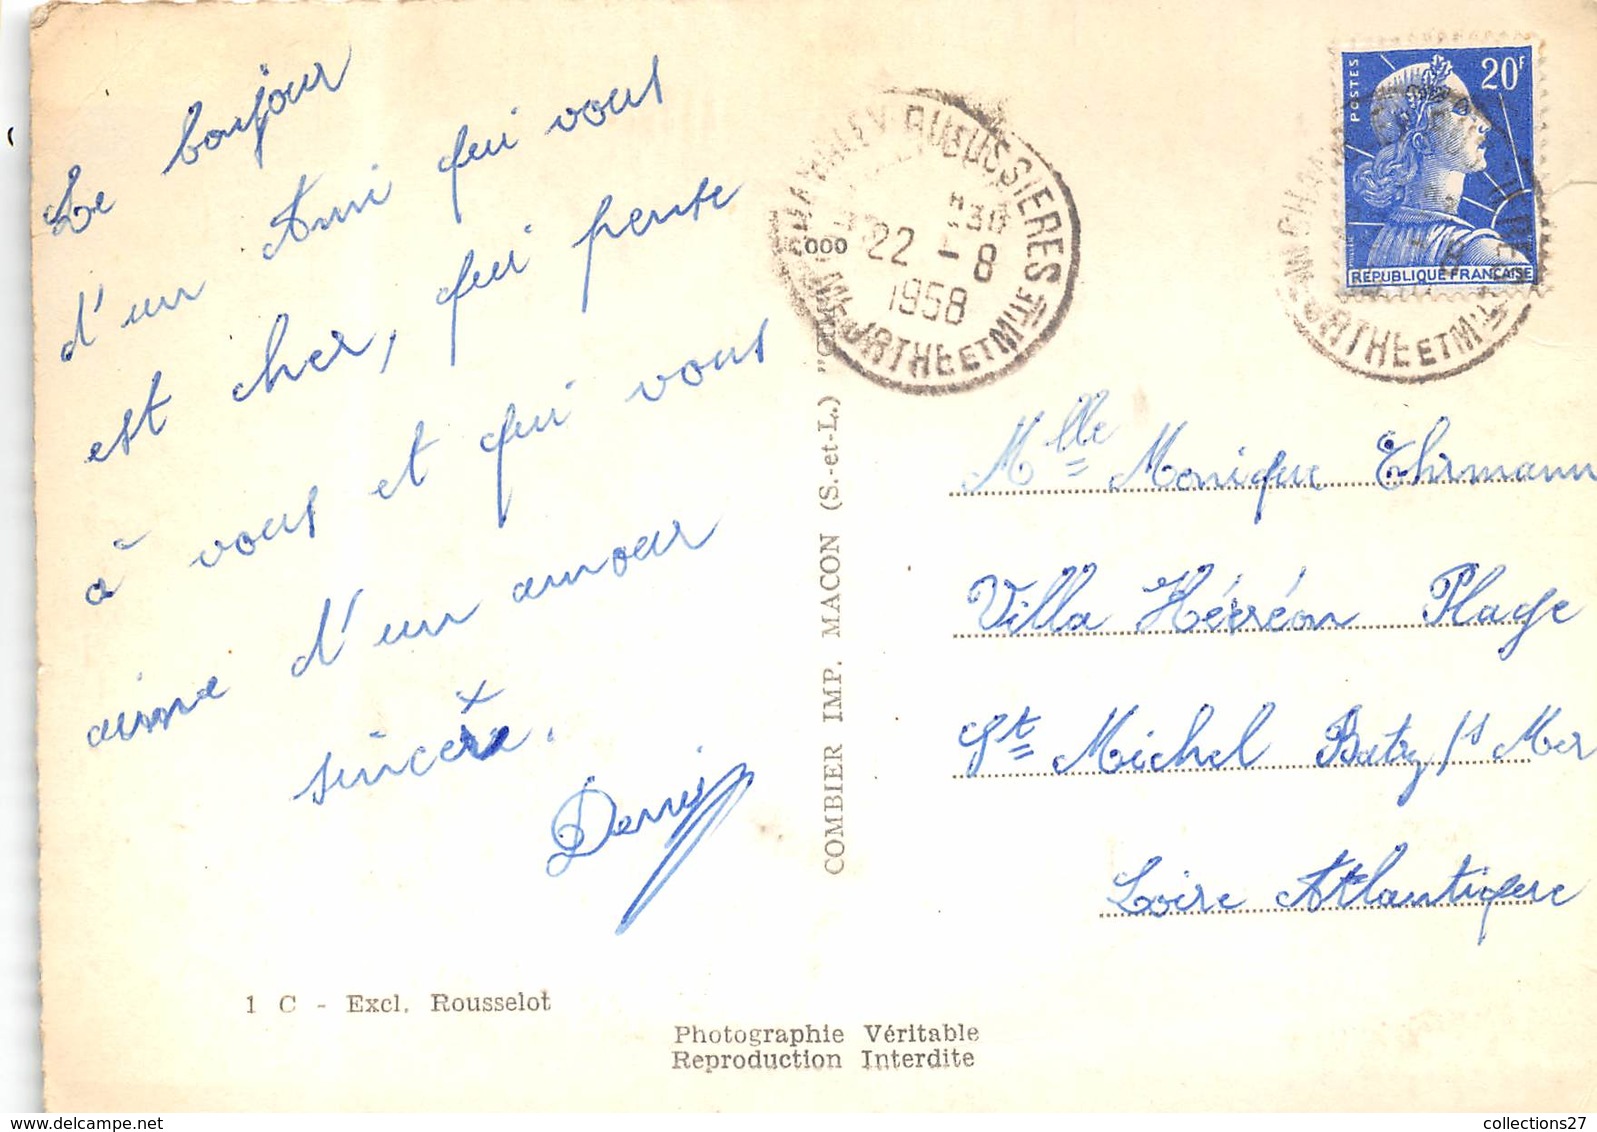 Le bonjour
d'un Ami qui vous
est cher, qui pense
à vous et qui vous
aime d'un amour
sincère.
Denis
1 C - Excl. Rousselot
Photographie Véritable
Reproduction Interdite
COMBIER IMP. MACON (S.-et-L.)
22 - 8
1958
MEURTHE ET MLLE
POSTES
20F
REPUBLIQUE FRANÇAISE
Mlle Monique Ehrmann
Villa Plage
St Michel Batz / s Mer
Loire Atlantique
collections27